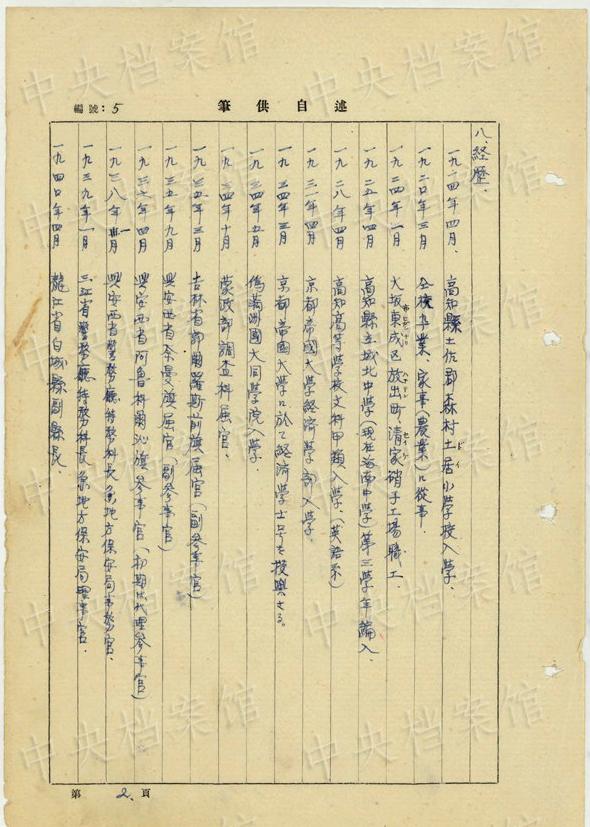 編號：5
述自供筆
八、経歴.
一九一四年四月、高知縣土佐郡森村土居小學校入學.
一九二〇年三月 全校卒業、家事(農業)ニ從事.
一九二四年一月、大坂東成区放出町、清家硝子工場職工.
一九二五年四月 高知縣立城北中學(現在海南中學)第三學年編入、
一九二八年四月 高知高等學校文科甲類入學、(英語系)
一九三一年四月 京都帝國大學経済學部入學.
一九三四年三月 京都帝國大學ニ於て経済學士号を授與さる。
一九三四年五月 偽満洲國大同學院入學.
一九三四年十月 蒙政部調査科属官、
一九三五年三月 吉林省郭爾羅斯前旗属官(副参事官)
一九三五年九月 興安西省奈曼旗属官(副参事官)
一九三六年四月 興安西省阿魯科爾沁旗参事官(初期ハ代理参事官)
一九三八年 興安西省警務廳特務科長兼地方保安局事務官、
一九三九年一月 三江省警務廳特務科長兼地方保安局理事官.
一九四〇年四月 龍江省白城縣副縣長、
第 2 頁
中央档案馆